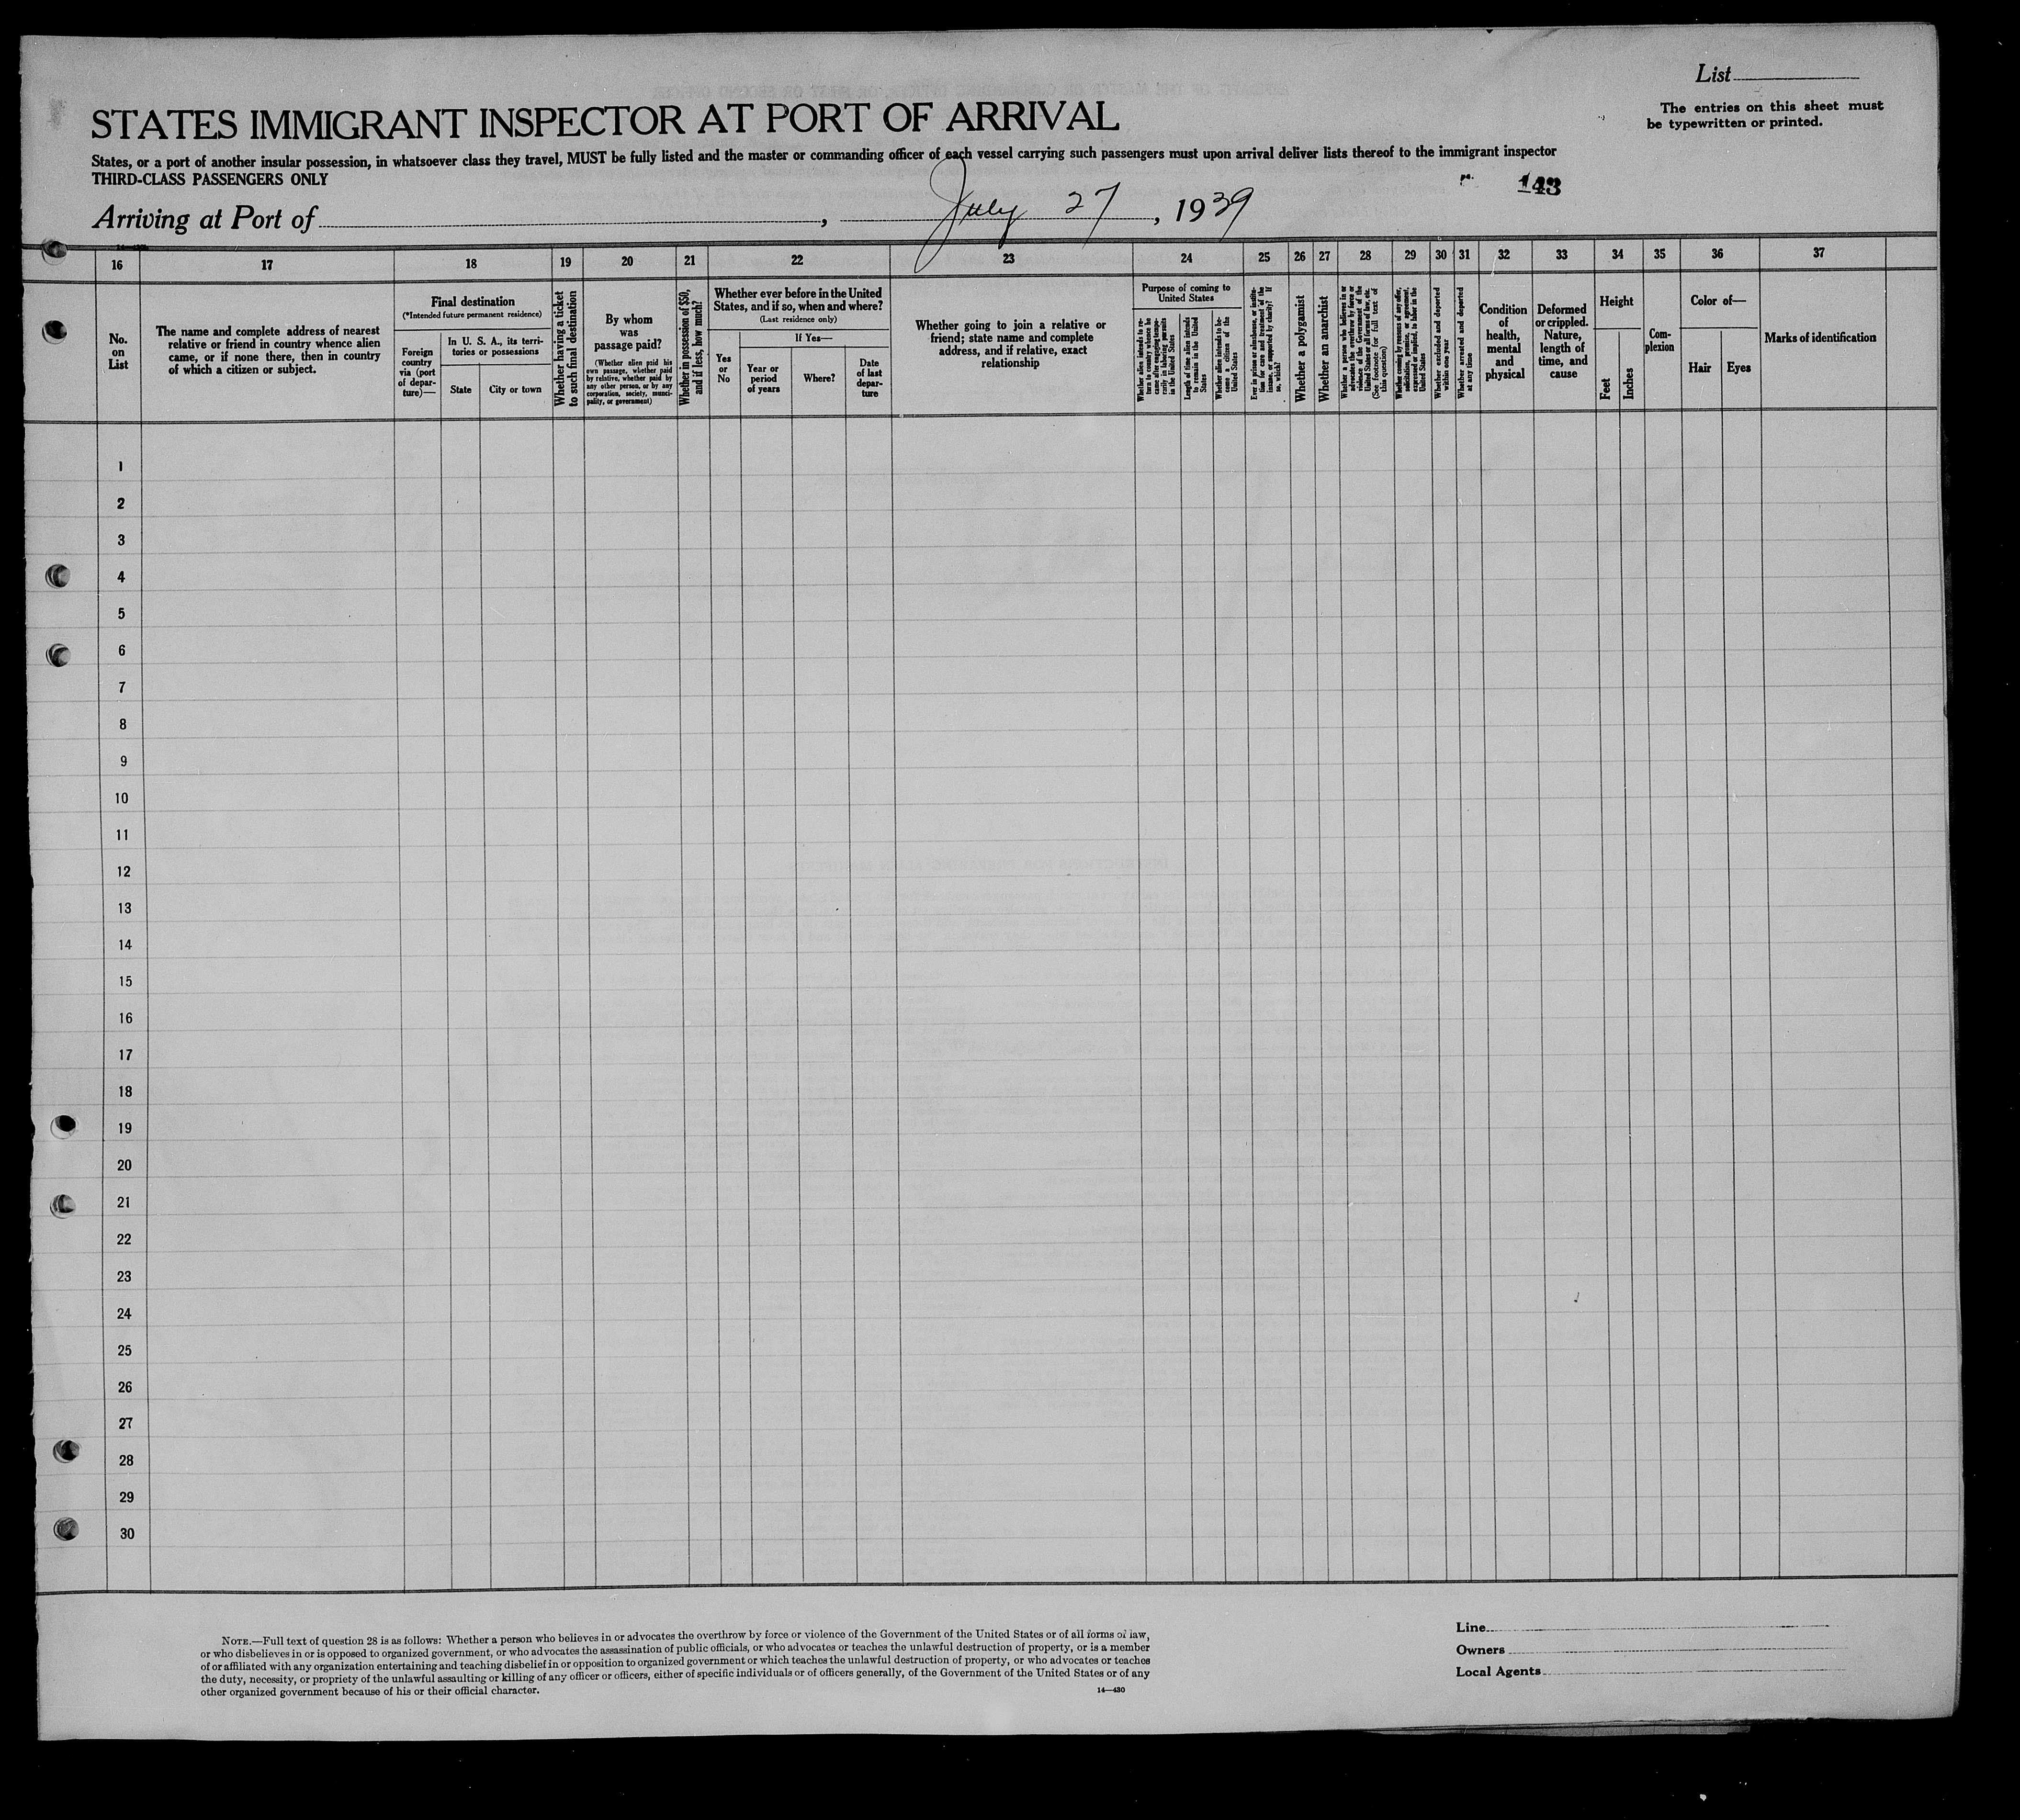 List
The entries on this sheet must
be typewritten or printed.
STATES IMMIGRANT INSPECTOR AT PORT OF ARRIVAL
States, or a port of another insular possession, in whatsoever class they travel, MUST be fully listed and the master or commanding officer of each vessel carrying such passengers must upon arrival deliver lists thereof to the immigrant inspector
THIRD-CLASS PASSENGERS ONLY
143
Arriving at Port of , July 27, 1939
16 17 18 19 20 21 22 23 24 25 26 27 28 29 30 31 32 33 34 35 36 37
No.
on
List
The name and complete address of nearest
relative or friend in country whence alien
came, or if none there, then in country
of which a citizen or subject.
Final destination
(*Intended future permanent residence)
Foreign
country
via (port
of depar-
ture)—
In U. S. A., its terri-
tories or possessions
State
City or town
Whether having a ticket
to such final destination
By whom
was
passage paid?
(Whether alien paid his
own passage, whether paid
by relative, whether paid by
any other person, or by any
corporation, society, munici-
pality, or government)
Whether in possession of $50,
and if less, how much?
Whether ever before in the United
States, and if so, when and where?
(Last residence only)
Yes
or
No
If Yes—
Year or
period
of years
Where?
Date
of last
depar-
ture
Whether going to join a relative or
friend; state name and complete
address, and if relative, exact
relationship
Purpose of coming to
United States
Whether alien intends to re-
turn to country whence he
came after engaging tempo-
rarily in laboring pursuits
in the United States
Length of time alien intends
to remain in the United
States
Whether alien intends to be-
come a citizen of the
United States
Ever in prison or almshouse, or institu-
tion for care and treatment of the
insane, or supported by charity? If
so, which?
Whether a polygamist
Whether an anarchist
Whether a person who believes in or
advocates the overthrow by force or
violence of the Government of the
United States or all forms of law, etc.
(See footnote for full text of
this question)
Whether coming by reasons of any offer,
solicitation, promise, or agreement,
expressed or implied, to labor in the
United States
Whether excluded and deported
within one year
Whether arrested and deported
at any time
Condition
of
health,
mental
and
physical
Deformed
or crippled.
Nature,
length of
time, and
cause
Height
Feet
Inches
Com-
plexion
Color of—
Hair
Eyes
Marks of identification
1
2
3
4
5
6
7
8
9
10
11
12
13
14
15
16
17
18
19
20
21
22
23
24
25
26
27
28
29
30
NOTE.—Full text of question 28 is as follows: Whether a person who believes in or advocates the overthrow by force or violence of the Government of the United States or of all forms of law,
or who disbelieves in or is opposed to organized government, or who advocates the assassination of public officials, or who advocates or teaches the unlawful destruction of property, or is a member
of or affiliated with any organization entertaining and teaching disbelief in or opposition to organized government or which teaches the unlawful destruction of property, or who advocates or teaches
the duty, necessity, or propriety of the unlawful assaulting or killing of any officer or officers, either of specific individuals or of officers generally, of the Government of the United States or of any
other organized government because of his or their official character.
14—430
Line
Owners
Local Agents